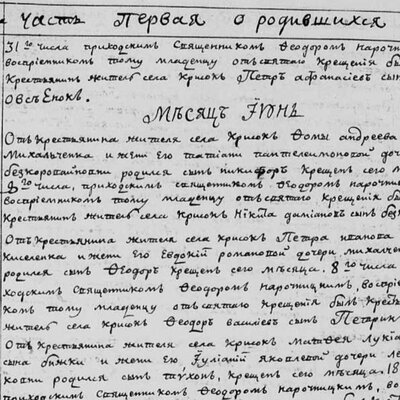 Часть Первая о родившихся
31 го числа приходскимъ Священникомъ Феодоромъ Нарочни
воспріемникомъ тому младенцу отъ святаго крещенія бы
Крестьянинъ житель села Крисокъ Петръ Афанасіевъ сын
Овсѣенокъ.
Мѣсяцъ Іюнь
Отъ Крестьянина жителя села Крисокъ Фомы Андреева
Михальченка и жены его Татіаны Пантелеимоновой доч
безкоровайновни родился сынъ Никифоръ крещенъ сего м
8 го числа, приходскимъ священникомъ Феодоромъ нарочни
воспріемникомъ тому младенцу отъ святаго крещенія бы
Крестьянинъ житель села Крисокъ Никита даміановъ сынъ без
Отъ Крестьянина жителя села Крисокъ Петра иванова
Киселенка и жены его Евдокіи романовой дочери михалче
родился сынъ Феодоръ крещенъ сего мѣсяца 8 го числа
ходскимъ Священникомъ Феодоромъ нарожницкимъ, воспрі
комъ тому младенцу отъ святаго крещенія былъ крест
житель села Крисокъ Феодоръ васильевъ сынъ Петрик
Отъ Крестьянина жителя села Крисокъ матфея лукіа
сына бижки и жены его Іуліаніи яковлевой дочери ле
ковни родился сынъ тихонъ, крещенъ сего мѣсяца 18
приходскимъ Священникомъ Феодоромъ нарожницкимъ, во